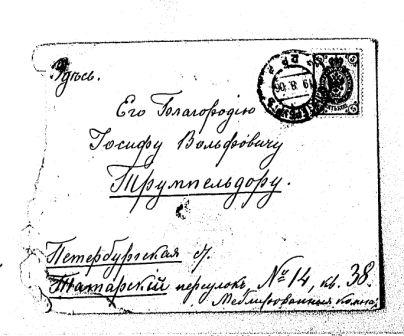 Здѣсь.
Его Благородію
Іосифу Вольфовичу
Трумпельдору.
Петербургская ст.
Татарскій переулокъ, № 14, кв. 38.
Меблированныя комнаты
19.8.06